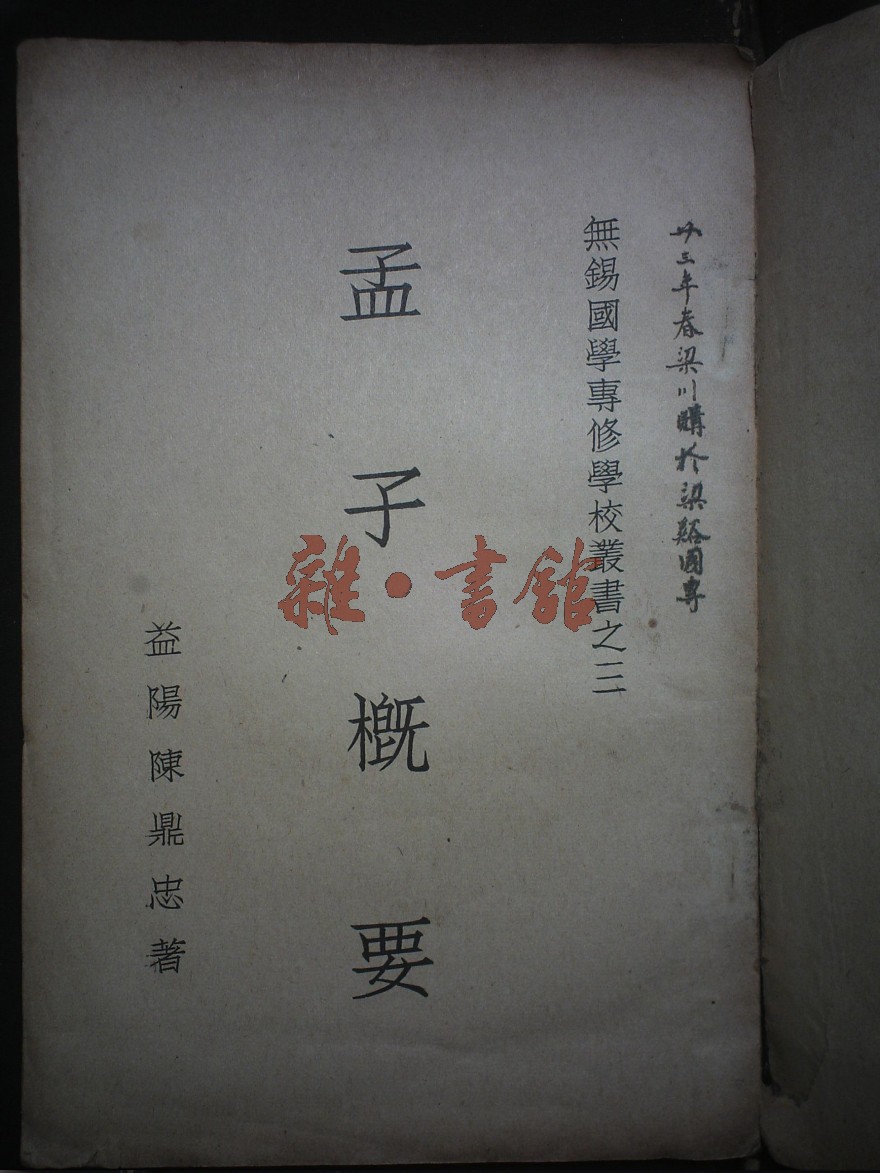 廿三年春梁川購於梁谿國專
無錫國學專修學校叢書之三
孟子概要
益陽陳鼎忠著
雜·書館